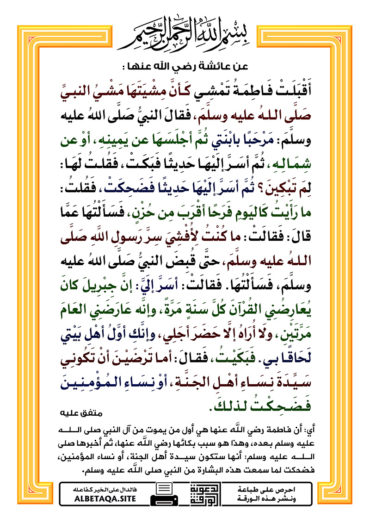 بسم الله الرحمن الرحيم
عن عائشة رضي الله عنها :
أَقْبَلَتْ فَاطِمَةُ تَمْشِي كَأَنَّ مِشْيَتَهَا مَشْيُ النبيِّ
صَلَّى اللهُ عليه وسلَّمَ، فَقالَ النبيُّ صَلَّى اللهُ عليه
وسلَّمَ: مَرْحَبًا بابْنَتي ثُمَّ أجْلَسَهَا عن يَمِينِهِ، أوْ عن
شِمَالِهِ، ثُمَّ أسَرَّ إلَيْهَا حَدِيثًا فَبَكَتْ، فَقُلتُ لَهَا:
لِمَ تَبْكِينَ؟ ثُمَّ أسَرَّ إلَيْهَا حَدِيثًا فَضَحِكَتْ، فَقُلتُ:
ما رَأَيْتُ كَاليَومِ فَرَحًا أقْرَبَ مِن حُزْنٍ، فَسَأَلْتُهَا عَمَّا
قالَ: فَقالَتْ: ما كُنْتُ لِأُفْشِيَ سِرَّ رَسولِ اللَّهِ صَلَّى
اللهُ عليه وسلَّمَ، حتَّى قُبِضَ النبيُّ صَلَّى اللهُ عليه
وسلَّمَ، فَسَأَلْتُهَا. فَقالَتْ: أسَرَّ إلَيَّ: إنَّ جِبْرِيلَ كانَ
يُعَارِضُنِي القُرْآنَ كُلَّ سَنَةٍ مَرَّةً، وإنَّه عَارَضَنِي العَامَ
مَرَّتَيْنِ، ولَا أُرَاهُ إلَّا حَضَرَ أجَلِي، وإنَّكِ أوَّلُ أهْلِ بَيْتي
لَحَاقًا بي. فَبَكَيْتُ، فَقالَ: أَما تَرْضَيْنَ أنْ تَكُونِي
سَيِّدَةَ نِسَاءِ أهْلِ الجَنَّةِ، أوْ نِسَاءِ المُؤْمِنِينَ
فَضَحِكْتُ لذلكَ.
متفق عليه
أي: أن فاطمة رضي الله عنها هي أول من يموت من آل النبي صلى الله
عليه وسلم بعده، وهذا هو سبب بكائها رضي الله عنها، ثم أخبرها صلى
الله عليه وسلم: أنها ستكون سيدة أهل الجنة، أو نساء المؤمنين،
فضحكت لما سمعت هذه البشارة من النبي صلى الله عليه وسلم.
احرص على طباعة
ونشر هذه الورقة
الورقة الدعوية
فالدال على الخير كفاعله
ALBETAQA.SITE